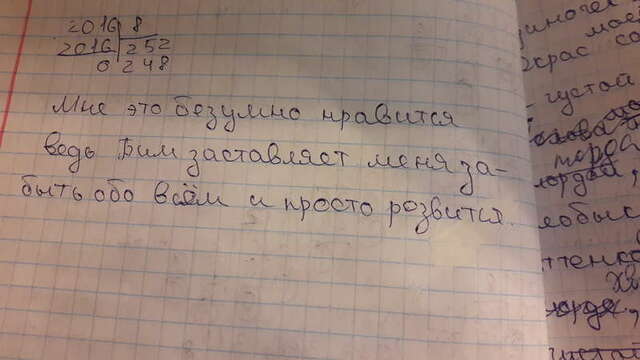 2016 8
2016 252
0 248
Мне это безумно нравится
ведь Бим заставляет меня за-
быть обо всём и просто розвится.
иночес
мас
крас со
густой
слова
морда
мордой,
лобыс
ттенко
хв
морда,